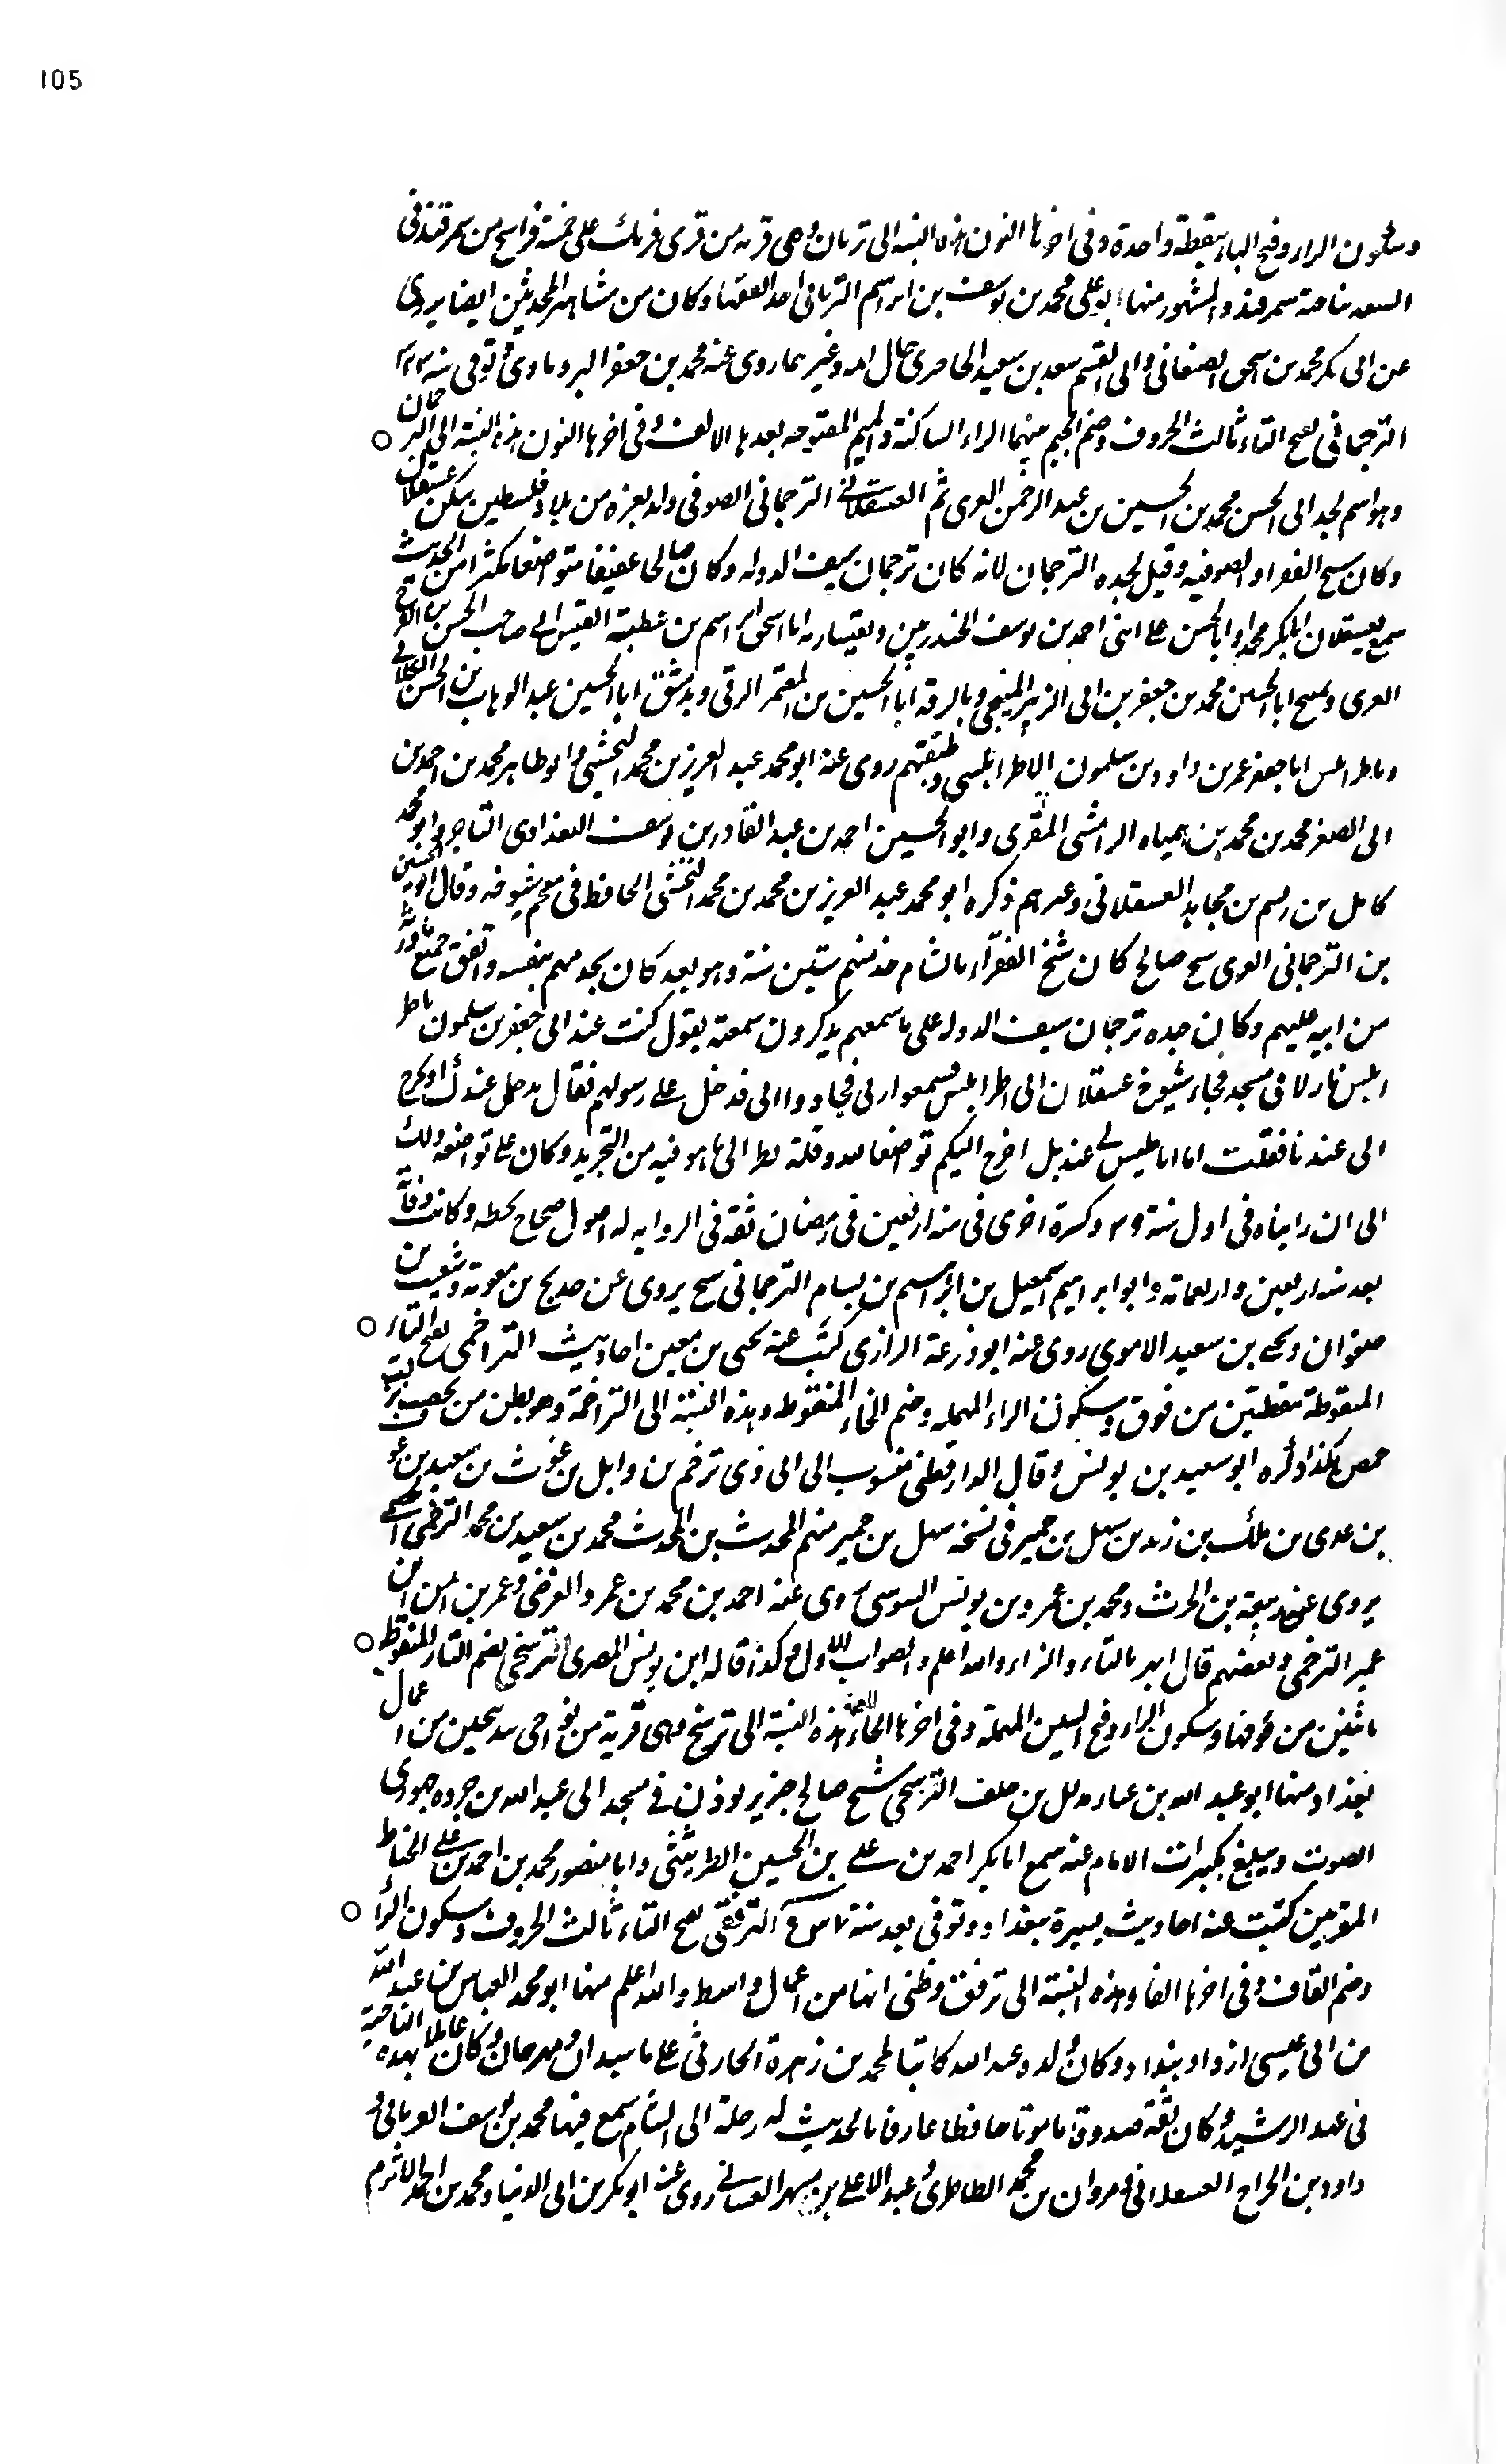 105
وسكون الراء وفتح الباء بنقطة واحدة وفى اخرها النون هذه النسبة الى تربان وهى قرية من قرى فرنك على خمسة فراسخ من سمرقند فى
السغد بناحية سمرقند والمشهور منها ابو على محمد بن يوسف بن ابراهيم الترباني احد الفقهاء وكان من مشاهير المحدثين ايضا يروى
عن ابى بكر محمد بن اسحق الصغانى وابى القسم سعد بن سعيد الحاصرى خال امه وغيرهما روى عنه محمد بن جعفر البروماوى توفى سنة ٣٢٣
الترجمانى بفتح التاء ثالث الحروف وضم الجيم بينهما الراء الساكنة والميم المفتوحة بعدها الالف وفى اخرها النون هذه النسبة الى الترجمان
وهو اسم لجد ابى الحسن محمد بن الحسين بن عبد الرحمن الغزى ثم العسقلانى الترجمانى الصوفى ولد بغزه من بلاد فلسطين سكن عسقلان
وكان شيخ الفقراء والصوفيه وقيل لجده الترجمان لانه كان ترجمان سيف الدوله وكان صالحا عفيفا متواضعا مكثرا من الحديث
سمع بعسقلان ابا بكر محمدا وابا الحسن على ابنى احمد بن يوسف الخندريين وبقيساريه ابا اسحق ابراهيم بن عطية القيسرانى صاحب الحسن بن الفرج
الغزى وبمنبج ابا الحسن محمد بن جعفر بن ابى الزبير المنبجى وبالرقة ابا الحسين بن المعتمر الرقى وبدمشق ابا الحسين عبد الوهاب بن الحسن الكلابى
وباطرابلس ابا جعفر عمر بن داود بن سلمون الاطرابلسى وطبقتهم روى عنه ابو محمد عبد العزيز بن محمد النخشبى وابو طاهر محمد بن احمد بن
ابى الصقر محمد بن محمد بن هميماه الرامشى المقرى وابو الحسين احمد بن عبد القادر بن يوسف البغدادى التاجر وابو محمد
كامل بن ديسم بن مجاهد العسقلانى وغيرهم ذكره ابو محمد عبد العزيز بن محمد بن محمد النخشبى الحافظ فى معجم شيوخه وقال ابو الحسين
بن الترجمانى الغزى شيخ صالح كان شيخ الفقراء بالشام خدمهم ستين سنة وهو بعد كان يخدمهم بنفسه وانفق جميع ما ورثه
من ابيه عليهم وكان جده ترجمان سيف الدوله على ما سمعتهم يذكرون سمعته يقول كنت عند ابى جعفر بن سلمون باطر
ابلس نازلا فى مسجد فجاء شيوخ عسقلان الى اطرابلس فسمعوا بى فجاووا الى فدخل على رسولهم فقال ندخل عندك او تخرج
الى عندنا فقلت اما انا فليس لى عند بل اخرج اليكم تواضعا لله وقلة نظر الى ما هو فيه من التجريد وكان على تواضعه ذلك
الى ان رايناه فى اول سنة ٣٩ وكرة اخرى فى سنة اربعين فى رمضان ثقة فى الرواية له اصول صحاح بخطه وكانت وفاته
بعد سنة اربعين واربعمائة وابو ابراهيم اسمعيل بن ابراهيم بن بسام الترجمانى شيخ يروى عن حديج بن معوية وشعيب بن
صفوان ويحيى بن سعيد الاموى روى عنه ابو زرعة الرازى كتب عنه يحيى بن معين احاديث الترخمى بفتح التاء
المنقوطة بنقطتين من فوق وسكون الراء المهملة وضم الخاء المنقوطه هذه النسبة الى التراخمة وهو بطن من يحصب نزلت
حمص هكذا ذكره ابو سعيد بن يونس وقال الدارقطنى منسوب الى ابى ذى ترخم بن وايل بن غوث بن سعيد بن عو
بن عدى بن ملك بن زيد بن سهل بن حمير فى نسخة سهل من حمير منهم المحدث بن المحدث محمد بن سعيد بن محمد الترخمى الحمصى
يروى عن ربيعة بن الحرث ومحمد بن عمرو بن يونس السوسى روى عنه احمد بن محمد بن عمرو الفرضى وعمر بن ايمن ابن
عمير الترخمى وبعضهم قال انه بالتاء والزاء والله اعلم والصواب الاول وكذا قاله ابن يونس المصرى الترسخى بضم التاء المنقوطه
باثنتين من فوقها وسكون الراء وفتح السين المهملة وفى اخرها الخاء المعجمة هذه النسبة الى ترسخ وهى قرية من نواحى بندنيجين من اعمال
بغداد منها ابو عبد الله بن عنان بن خلف الترسخى شيخ صالح ضرير يوذن فى مسجد ابى عبد الله بن جرده جهورى
الصوت ويبلغ تكبيرات الامام عنه سمع ابا بكر احمد بن على بن الحسين الطريثيثى وابا منصور محمد بن احمد بن على الخياط
المقرئين كتبت عنه احاديث يسيرة ببغداد وتوفى بعد سنة الترقفى بفتح التاء ثالث الحروف وسكون الراء
وضم القاف وفى اخرها الفاء هذه النسبة الى ترقف وظنى انها من اعمال واسط والله اعلم منها ابو محمد العباس بن عبد الله
بن ابى عيسى ازداد بنداد وكان ولد وعبد الله كاتبا لمحمد بن زهرة الحارثى على ماسبدان ومهرجان وكان عاملا بهذه الناحية
فى عهد الرشيد وكان ثقة صدوقا مامونا حافظا عارفا بالحديث له رحلة الى الشام سمع فيها محمد بن يوسف الفريابى و
داود بن الجراح العسقلانى ومروان بن محمد الطاطرى وعبد الاعلى بن مسهر الغسانى روى عنه ابو بكر بن ابى الدنيا ومحمد بن احمد الاثرم